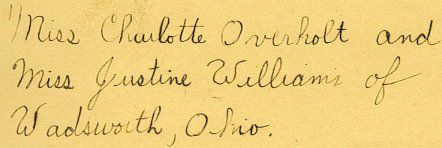 "Miss Charlotte Overholt and
Miss Justine Williams of
Wadsworth, Ohio.